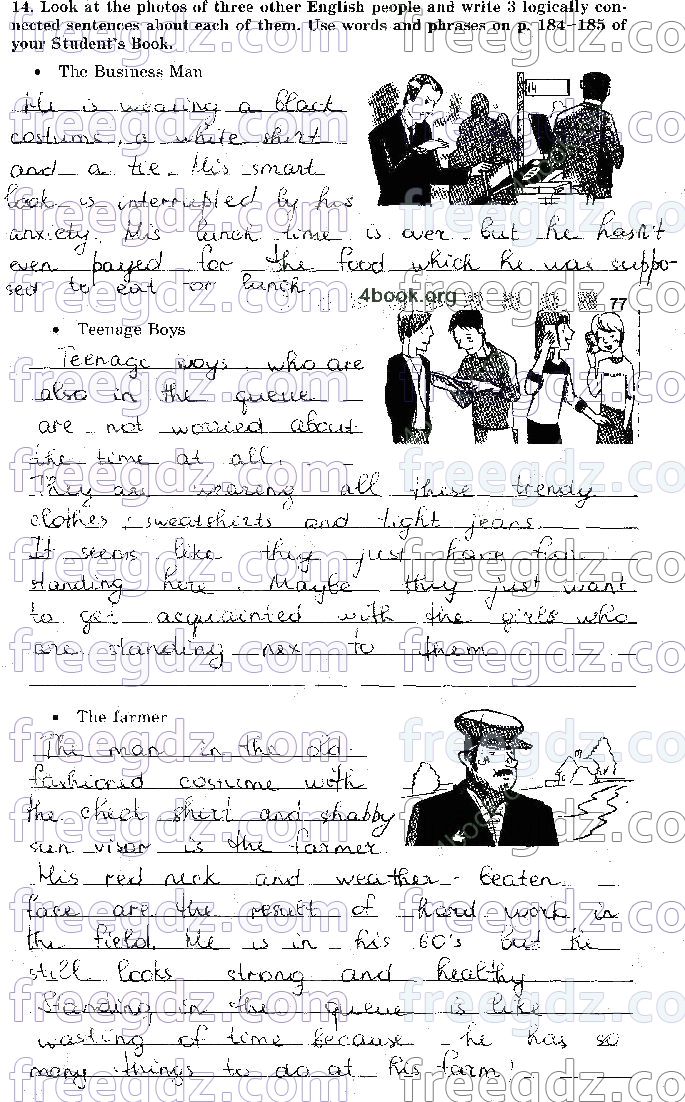 14. Look at the photos of three other English people and write 3 logically con-
nected sentences about each of them. Use words and phrases on p. 184–185 of
your Student's Book.
• The Business Man
He is wearing a black
costume, a white shirt
and a tie. His smart
look is interrupted by his
anxiety. His lunch time is over but he hasn't
even payed for the food which he was suppo-
sed to eat for lunch
14
4book.org
77
• Teenage Boys
Teenage boys, who are
also in the queue
are not worried about
the time at all.
They are wearing all these trendy
clothes: sweatshirts and tight jeans.
It seems like they just have fun
standing here. Maybe they just want
to get acquainted with the girls who
are standing nex to them
• The farmer
The man in the old-
fashioned costume with
the check shirt and shabby
sun visor is the farmer
His red neck and weather-beaten
face are the result of hard work in
the field. He is in his 60's but he
still looks strong and healthy
Standing in the queue is like
wasting of time because he has so
many things to do at his farm!
freegdz.com